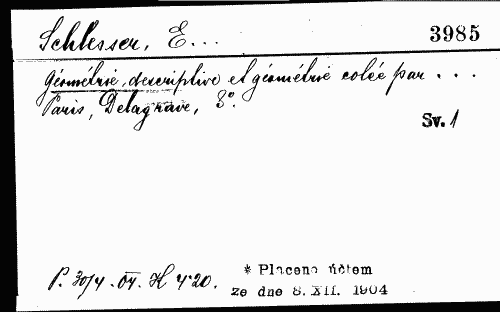 Schlesser, E... 3985
Géométrie descriptive et géométrie cotée par ...
Paris, Delagrave, 8°.
Sv. 1
P. 30/4. 04. K 4·20.
* Placeno účtem
ze dne 8. XII. 1904